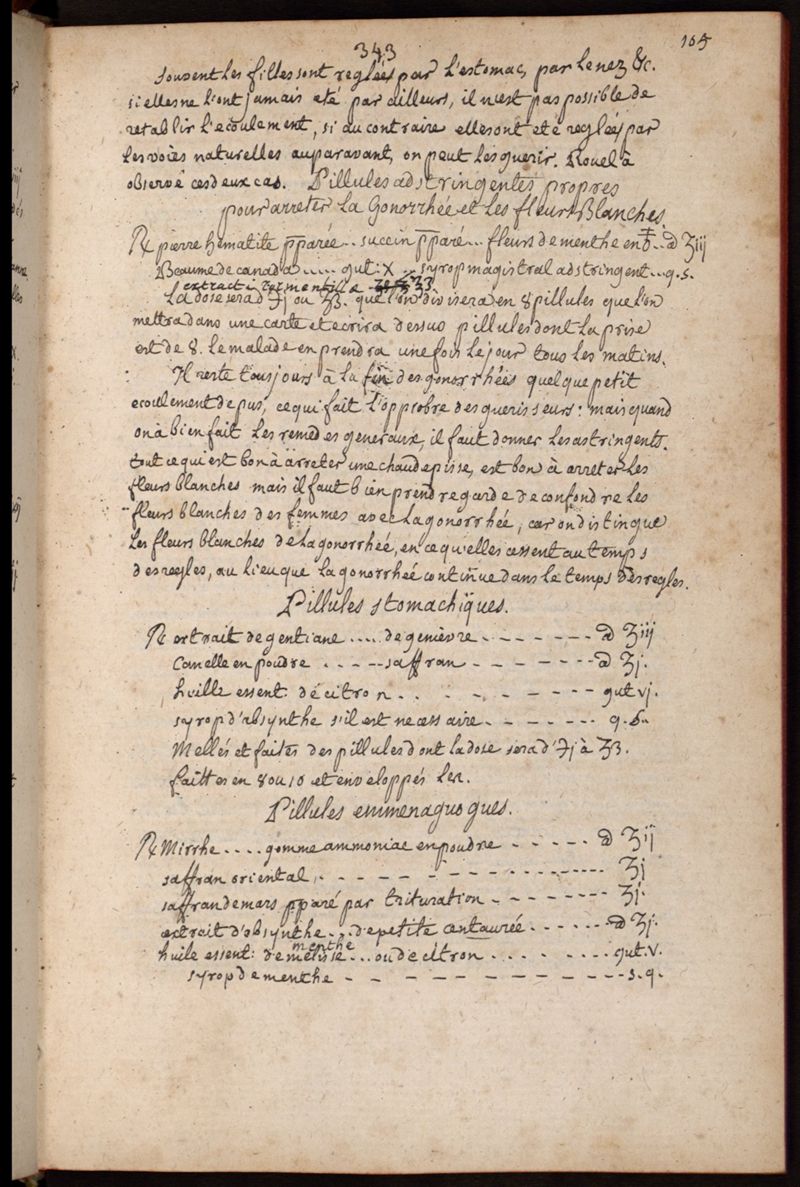 343
165
souvent les filles sont reglées par l'estomac, par le nez &c.
si elles ne l'ont jamais eté par ailleurs, il n'est pas possible de
retablir l'ecoulement, si au contraire elles ont eté reglées par
les voies naturelles auparavant, on peut les guerir. Rouel à
observé ces deux cas. Pillules adstringentes propres
pour arreter la Gonorrhée et les fleurs Blanches.
℞ pierre hématite pparée .. succin pparé .. fleurs de menthe en .. a ʒiij
Beaume de canada ..... gut: X .. syrop magistral adstringent .. q.s.
extract: tormentilla
La dose sera d'℈j ou ʒß. que l'on divisera en 8 pillules que l'on
mettra dans une carte et ecrira dessus pillules dont la prise
est de 8. le malade en prendra une fois le jour tous les matins.
Il reste tousjours à la fin des gonorrhées quelque petit
ecoulement de pus, ce qui fait l'opprobre des guerisseurs: mais quand
on à bien fait les remedes generaux, il faut donner les astringents.
tout ce qui est bon à arreter une chaudepisse, est bon à arreter les
fleurs blanches mais il faut bien prendre garde de confondre les
fleurs blanches des femmes avec la gonorrhée, car on distingue
les fleurs blanches de la gonorrhée, en ce qu'elles cessent au temps
des regles, au lieu que la gonorrheé continue dans le temps des regles.
Pillules stomachiques.
℞ extrait de gentiane .... de genievre - - - - - - - a ʒiij
Canelle en poudre - - - - - saffran - - - - - - - a ʒj.
huille essent. de citron . . - - - - - - gut vj.
syrop d'absynthe s'il est necessaire - - - - - - q.s.
Mellés et faites des pillules dont la dose sera d'℈j à ʒß.
faittes en 8 ou 10 et enveloppés les.
Pillules emmenaguogues.
℞ Mirrhe .... gomme ammoniac en poudre - - - - - a ʒij
saffran oriental, - - - - - - - - - - ʒj
saffran de mars pparé par trituration - - - - - - - ʒj.
extrait d'absynthe ... de petite centaurée - - - - - - a ʒj.
huile essent: de melisse menthe ... ou de citron . . . . - - - - gut. v.
syrop de menthe - - - - - - - - - - - s.q.